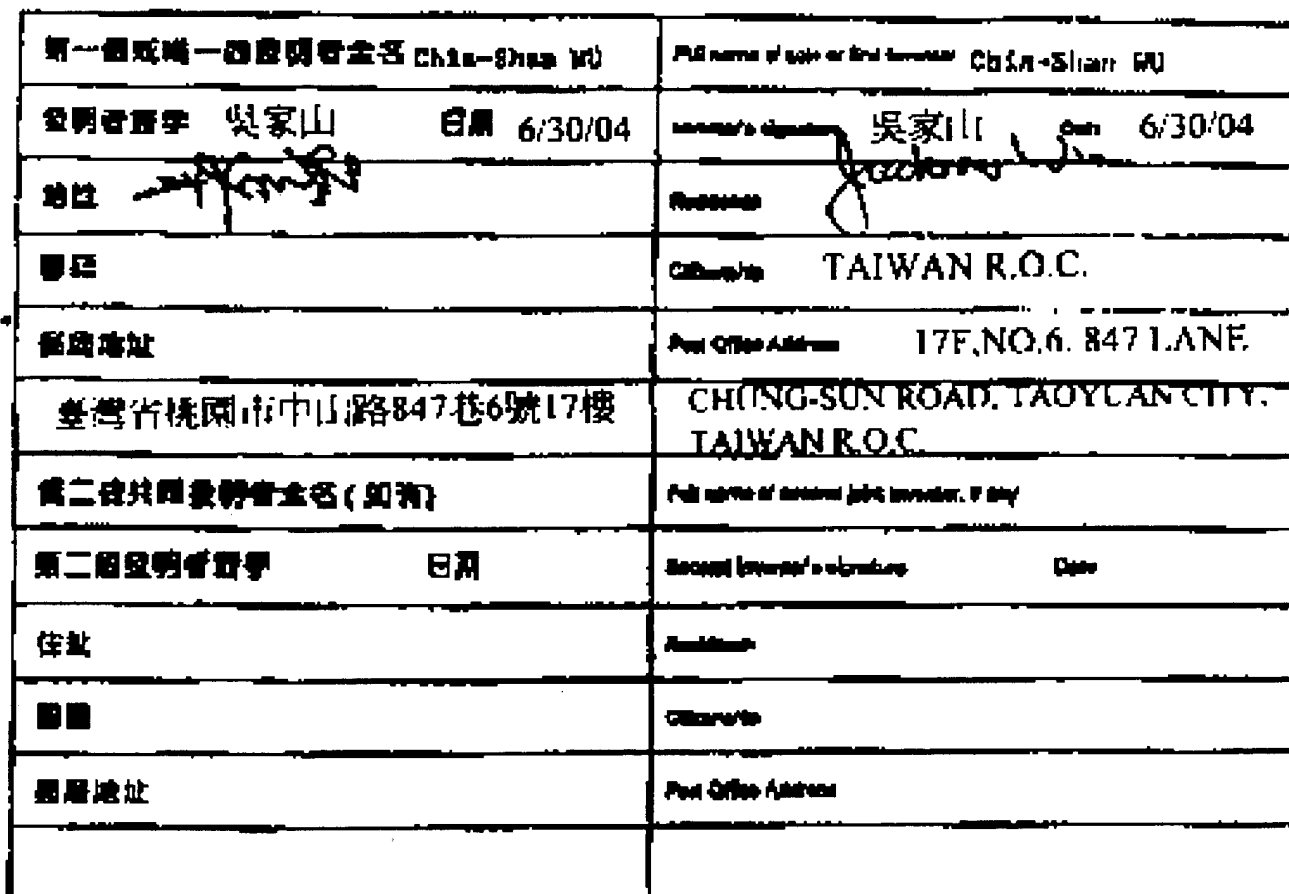 第一個或唯一個發明者全名 Chia-Shan WU
Full name of sole or first inventor Chia-Shan WU
發明者簽字 吳家山 日期 6/30/04
Inventor's signature 吳家山 Date 6/30/04
地址
Residence
國籍
Citizenship TAIWAN R.O.C.
郵政地址
Post Office Address 17F,NO.6. 847 LANE
臺灣省桃園市中山路847巷6號17樓
CHUNG-SUN ROAD, TAOYUAN CITY,
TAIWAN R.O.C.
第二個共同發明者全名(如有)
Full name of second joint inventor, if any
第二個發明者簽字 日期
Second inventor's signature Date
住址
Residence
國籍
Citizenship
郵政地址
Post Office Address